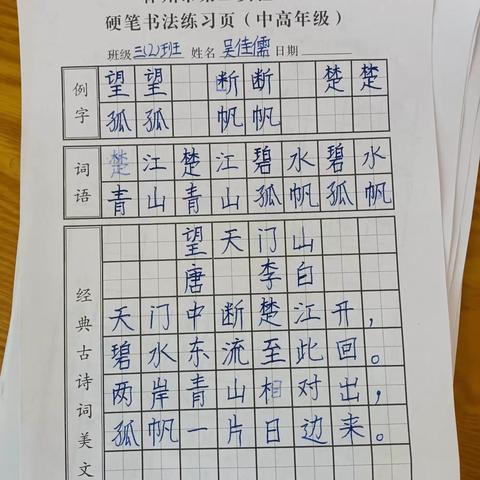 硬笔书法练习页（中高年级）
班级 三(2)班 姓名 吴佳儒 日期
例字
望 望 断 断 楚 楚
孤 孤 帆 帆
词语
楚 江 楚 江 碧 水 碧 水
青 山 青 山 孤 帆 孤 帆
经典古诗词美文
望 天 门 山
唐 李 白
天 门 中 断 楚 江 开，
碧 水 东 流 至 此 回。
两 岸 青 山 相 对 出，
孤 帆 一 片 日 边 来。